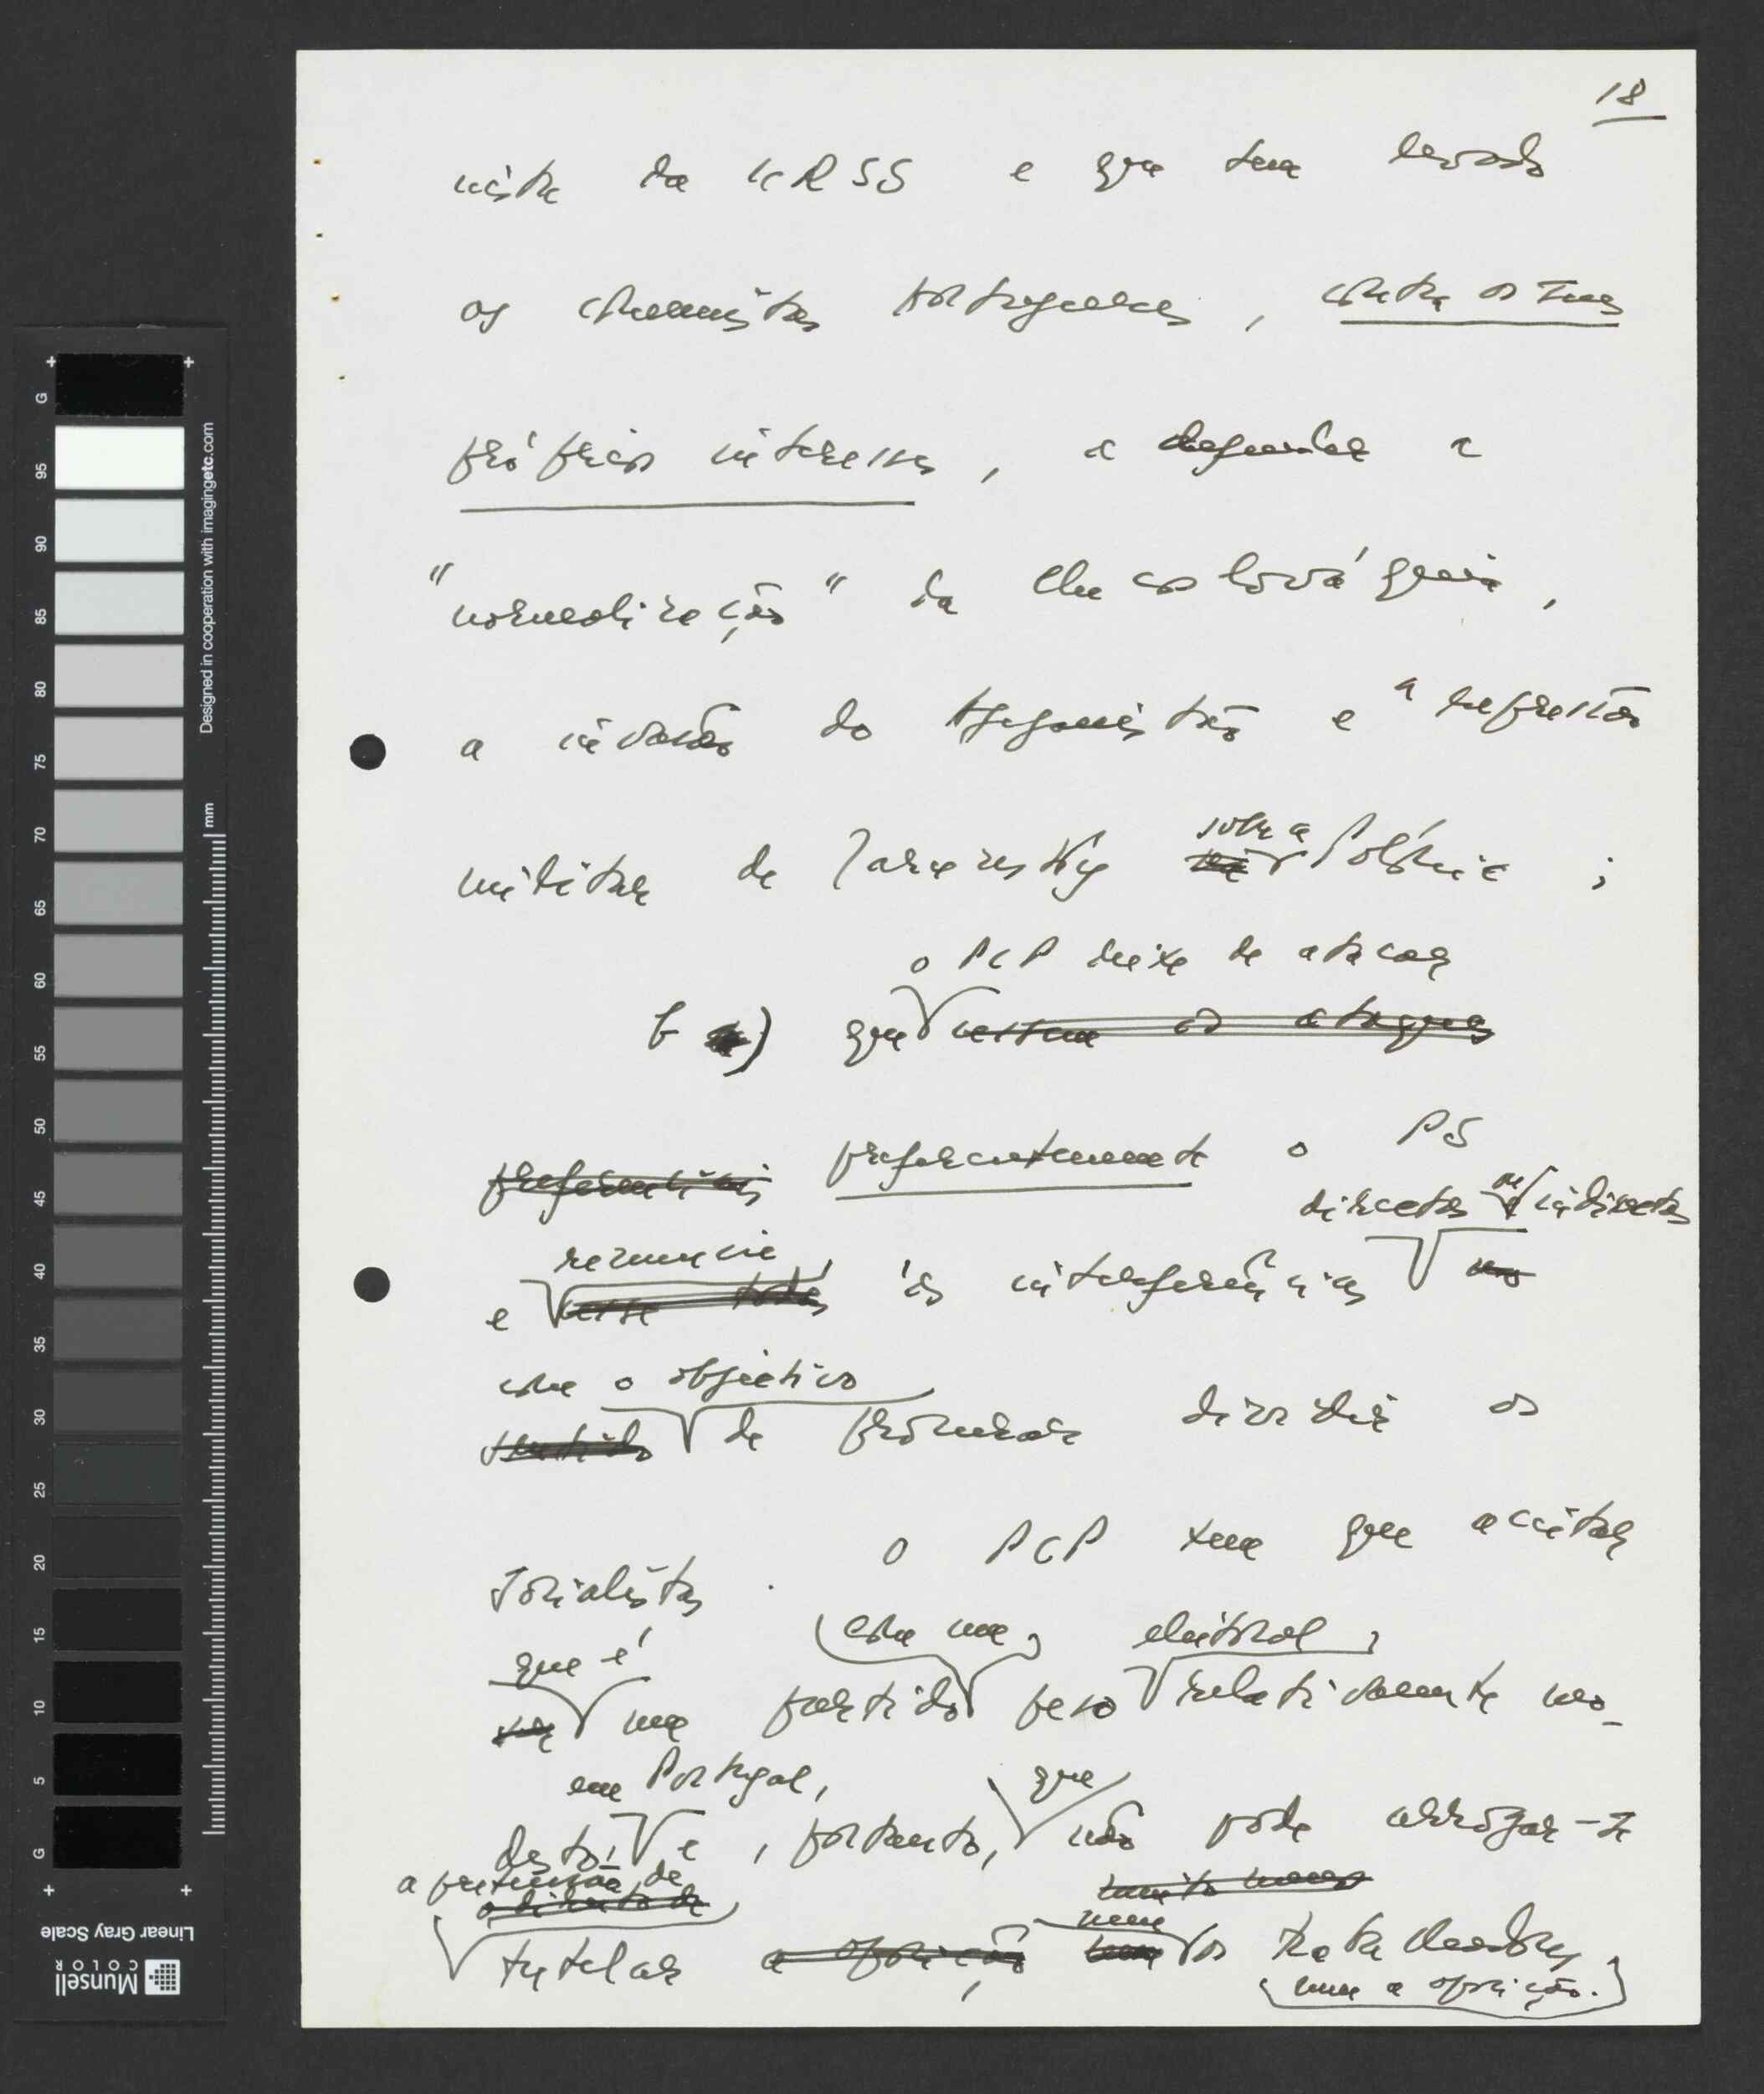 18
nista da URSS e que tem levado
os comunistas portugueses, contra os seus
próprios interesses, a defender a
"normalização" da Checoslováquia,
a invasão do Afeganistão e a repressão
militar de Jaruzelsky na sobre a Polónia ;
o PCP deixe de atacar
b ) que cessem os ataques
preferenciais preferentemente o PS
directas ou indirectas
renuncie
e cesse todas às interferências no
com o objectivo
sentido de procurar dividir os
socialistas . O PCP tem que aceitar
que é com um eleitoral,
ser um partido peso relativamente mo-
em Portugal, que
desto, e, portanto, não pode arrogar-se
a pretensão de muito menos
o direito de nem
tutelar a oposição, nem os trabalhadores,
nem a oposição.
G 95 90 85 80 75 70 65 60 55 50 45 40 35 30 25 20 15 10 5 G
Designed in cooperation with imagingetc.com
mm
Linear Gray Scale
Munsell
COLOR